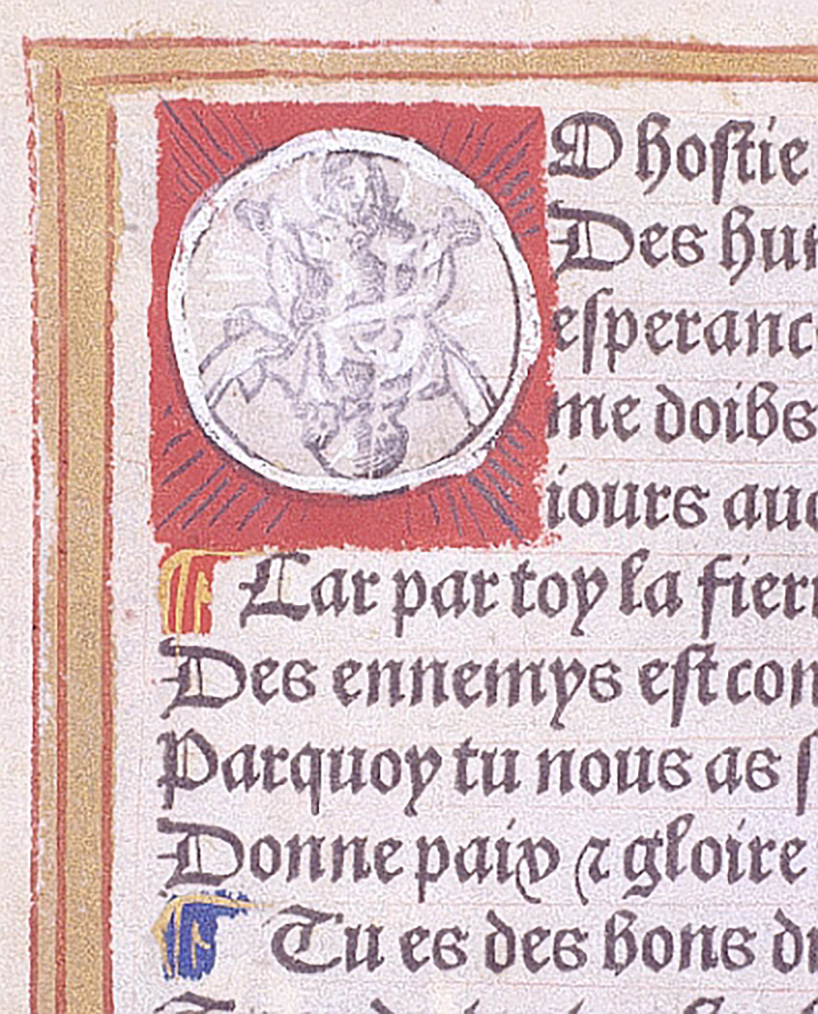 O hoſtie
Des hu
eſperanc
me doibs
iours au
Car par toy la fier
Des ennemys eſt con
Parquoy tu nous as ſ
Donne paix ⁊ gloire
Tu es des bons d